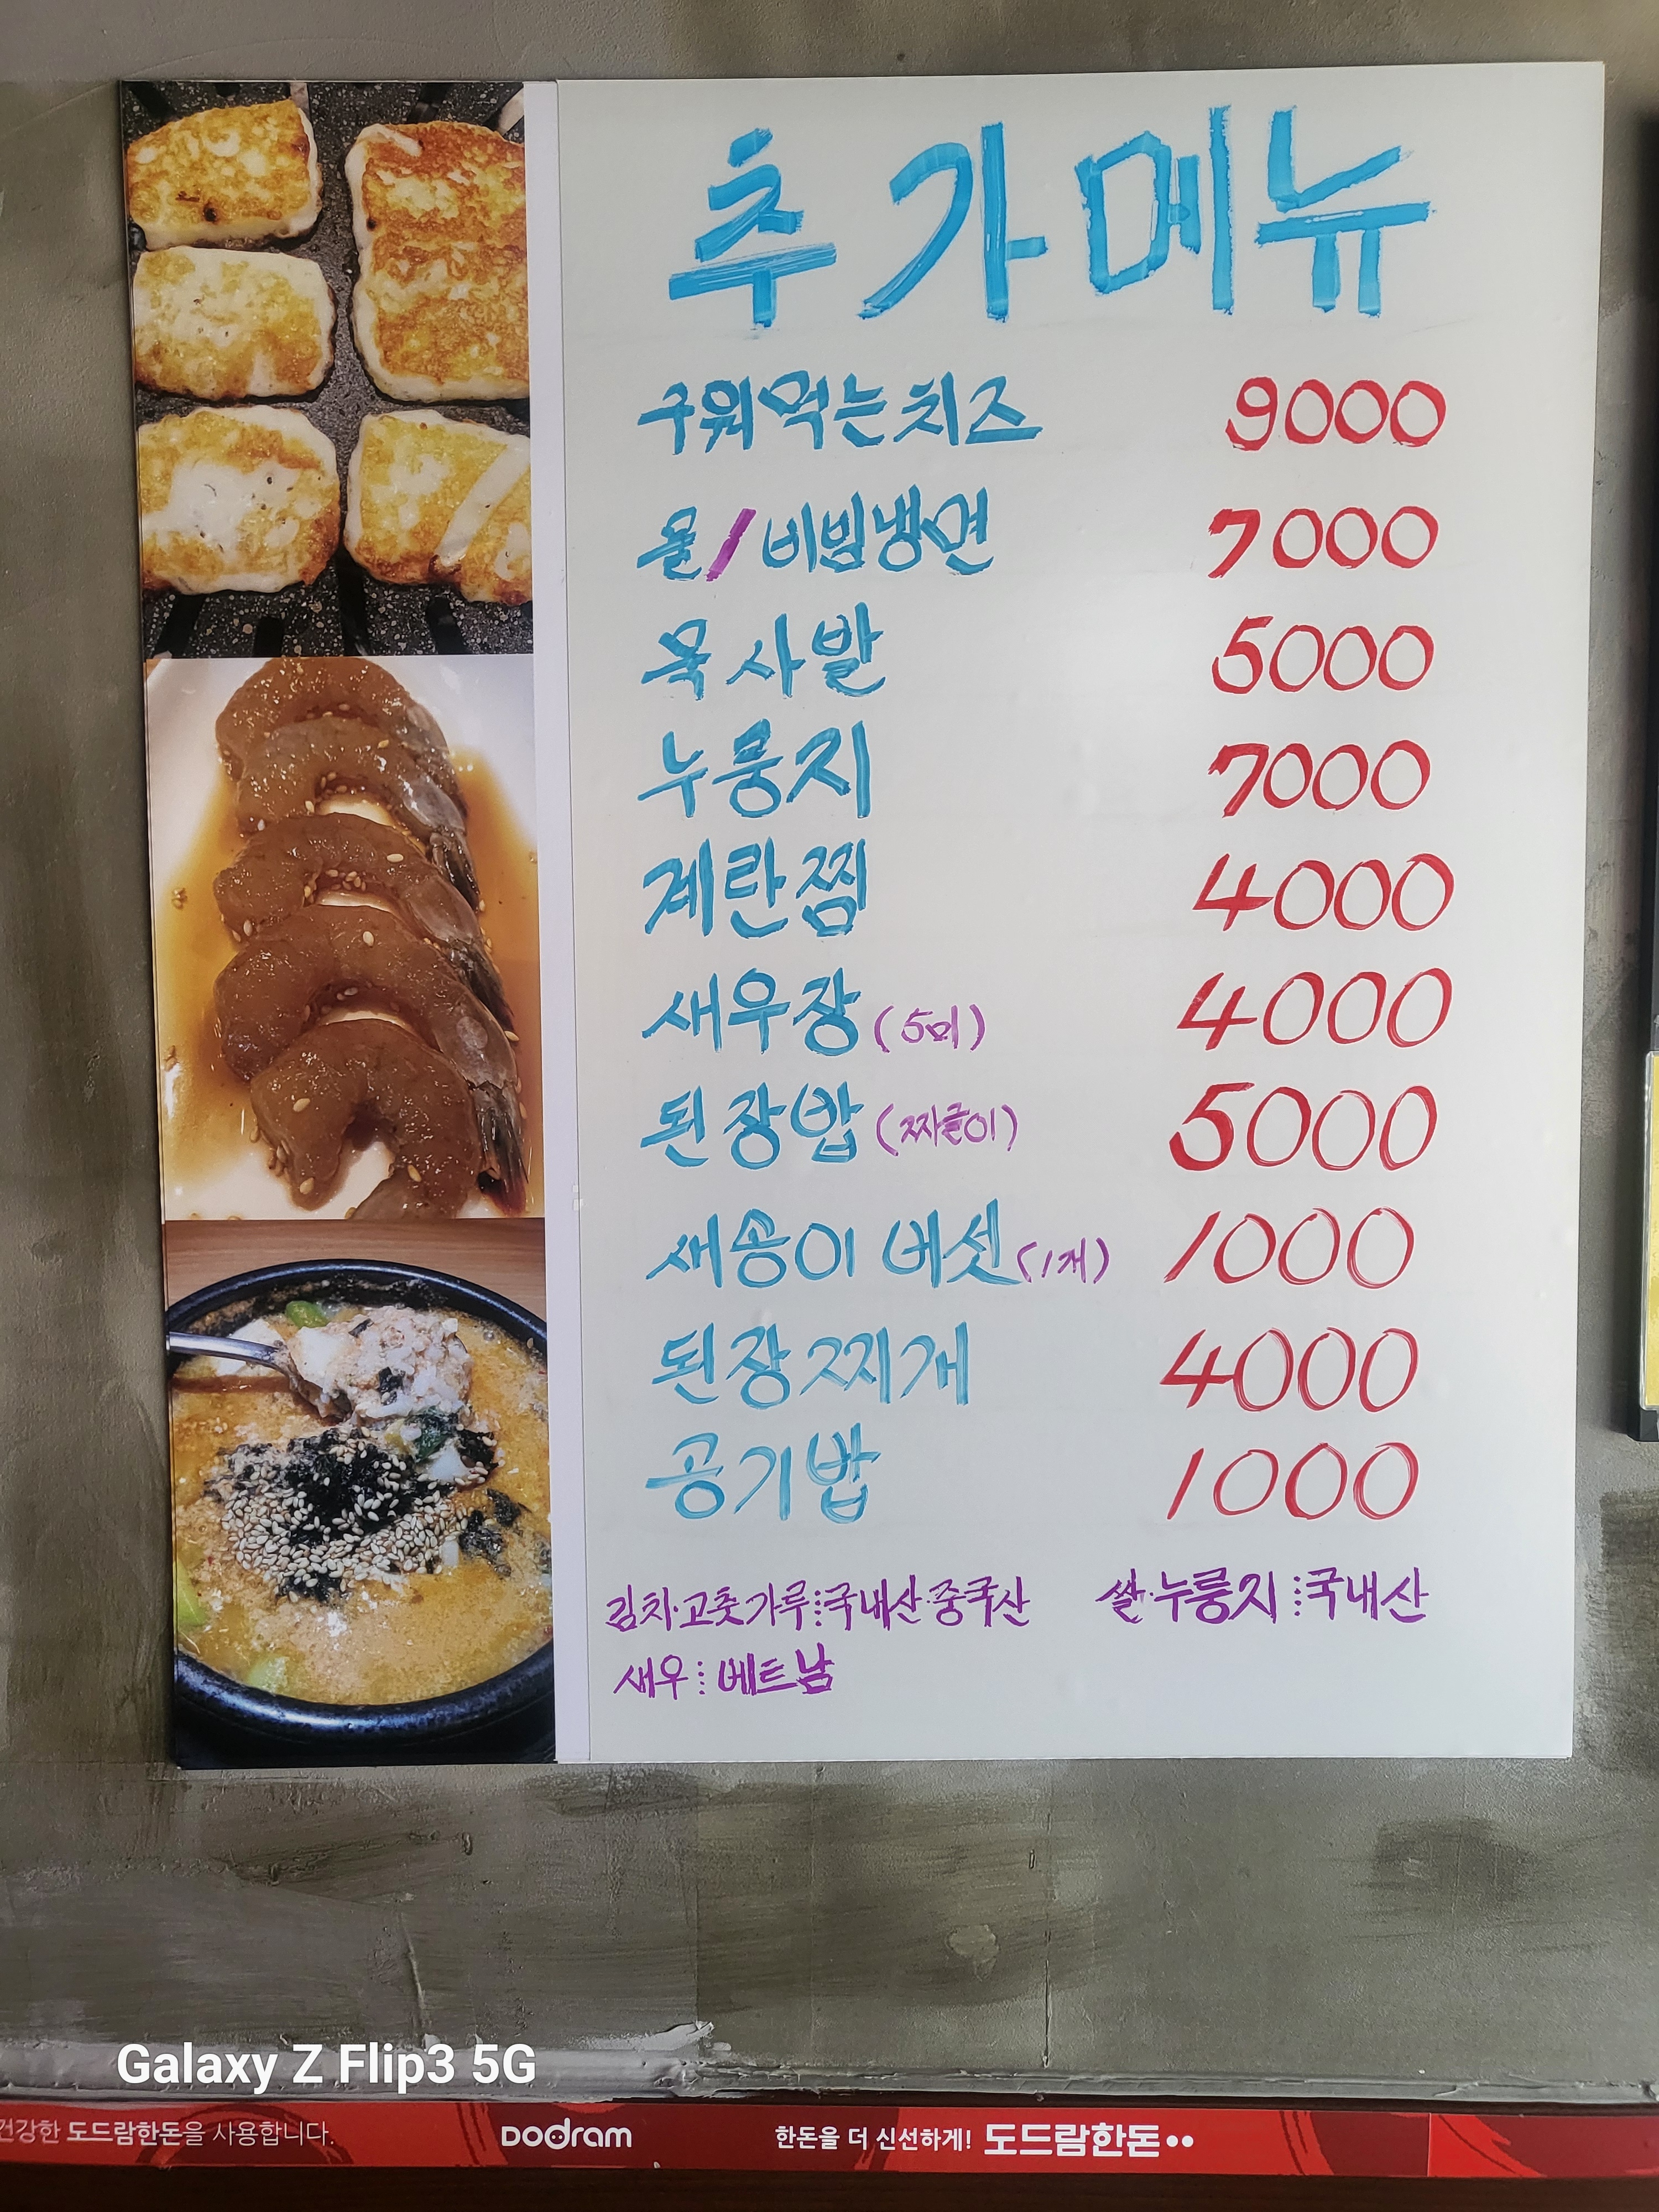 추가메뉴
구워먹는치즈 9000
물/비빔냉면 7000
묵사발 5000
누룽지 7000
계란찜 4000
새우장(5미) 4000
된장밥(짜글이) 5000
새송이 버섯(1개) 1000
된장찌개 4000
공기밥 1000
김치·고춧가루:국내산·중국산 쌀·누룽지:국내산
새우:베트남
Galaxy Z Flip3 5G
건강한 도드람한돈을 사용합니다. Dodram 한돈을 더 신선하게! 도드람한돈